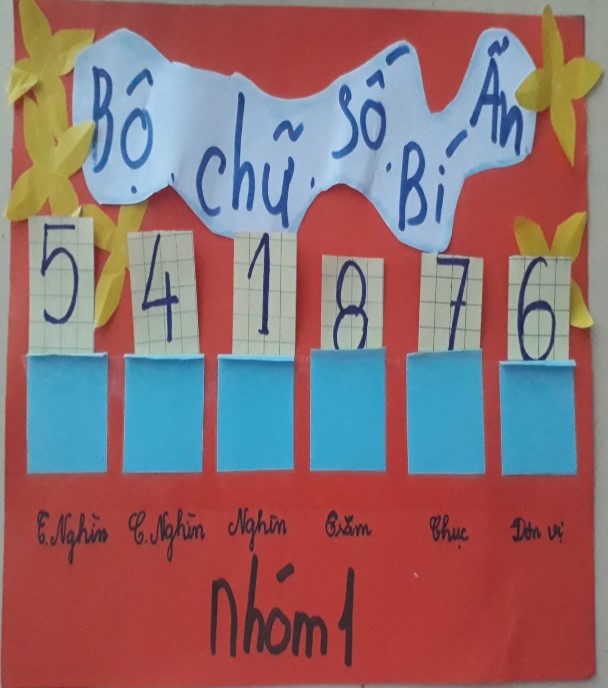 Bộ chữ số Bí Ẩn
5 4 1 8 7 6
T.Nghìn C.Nghìn Nghìn Trăm Chục Đơn vị
Nhóm 1